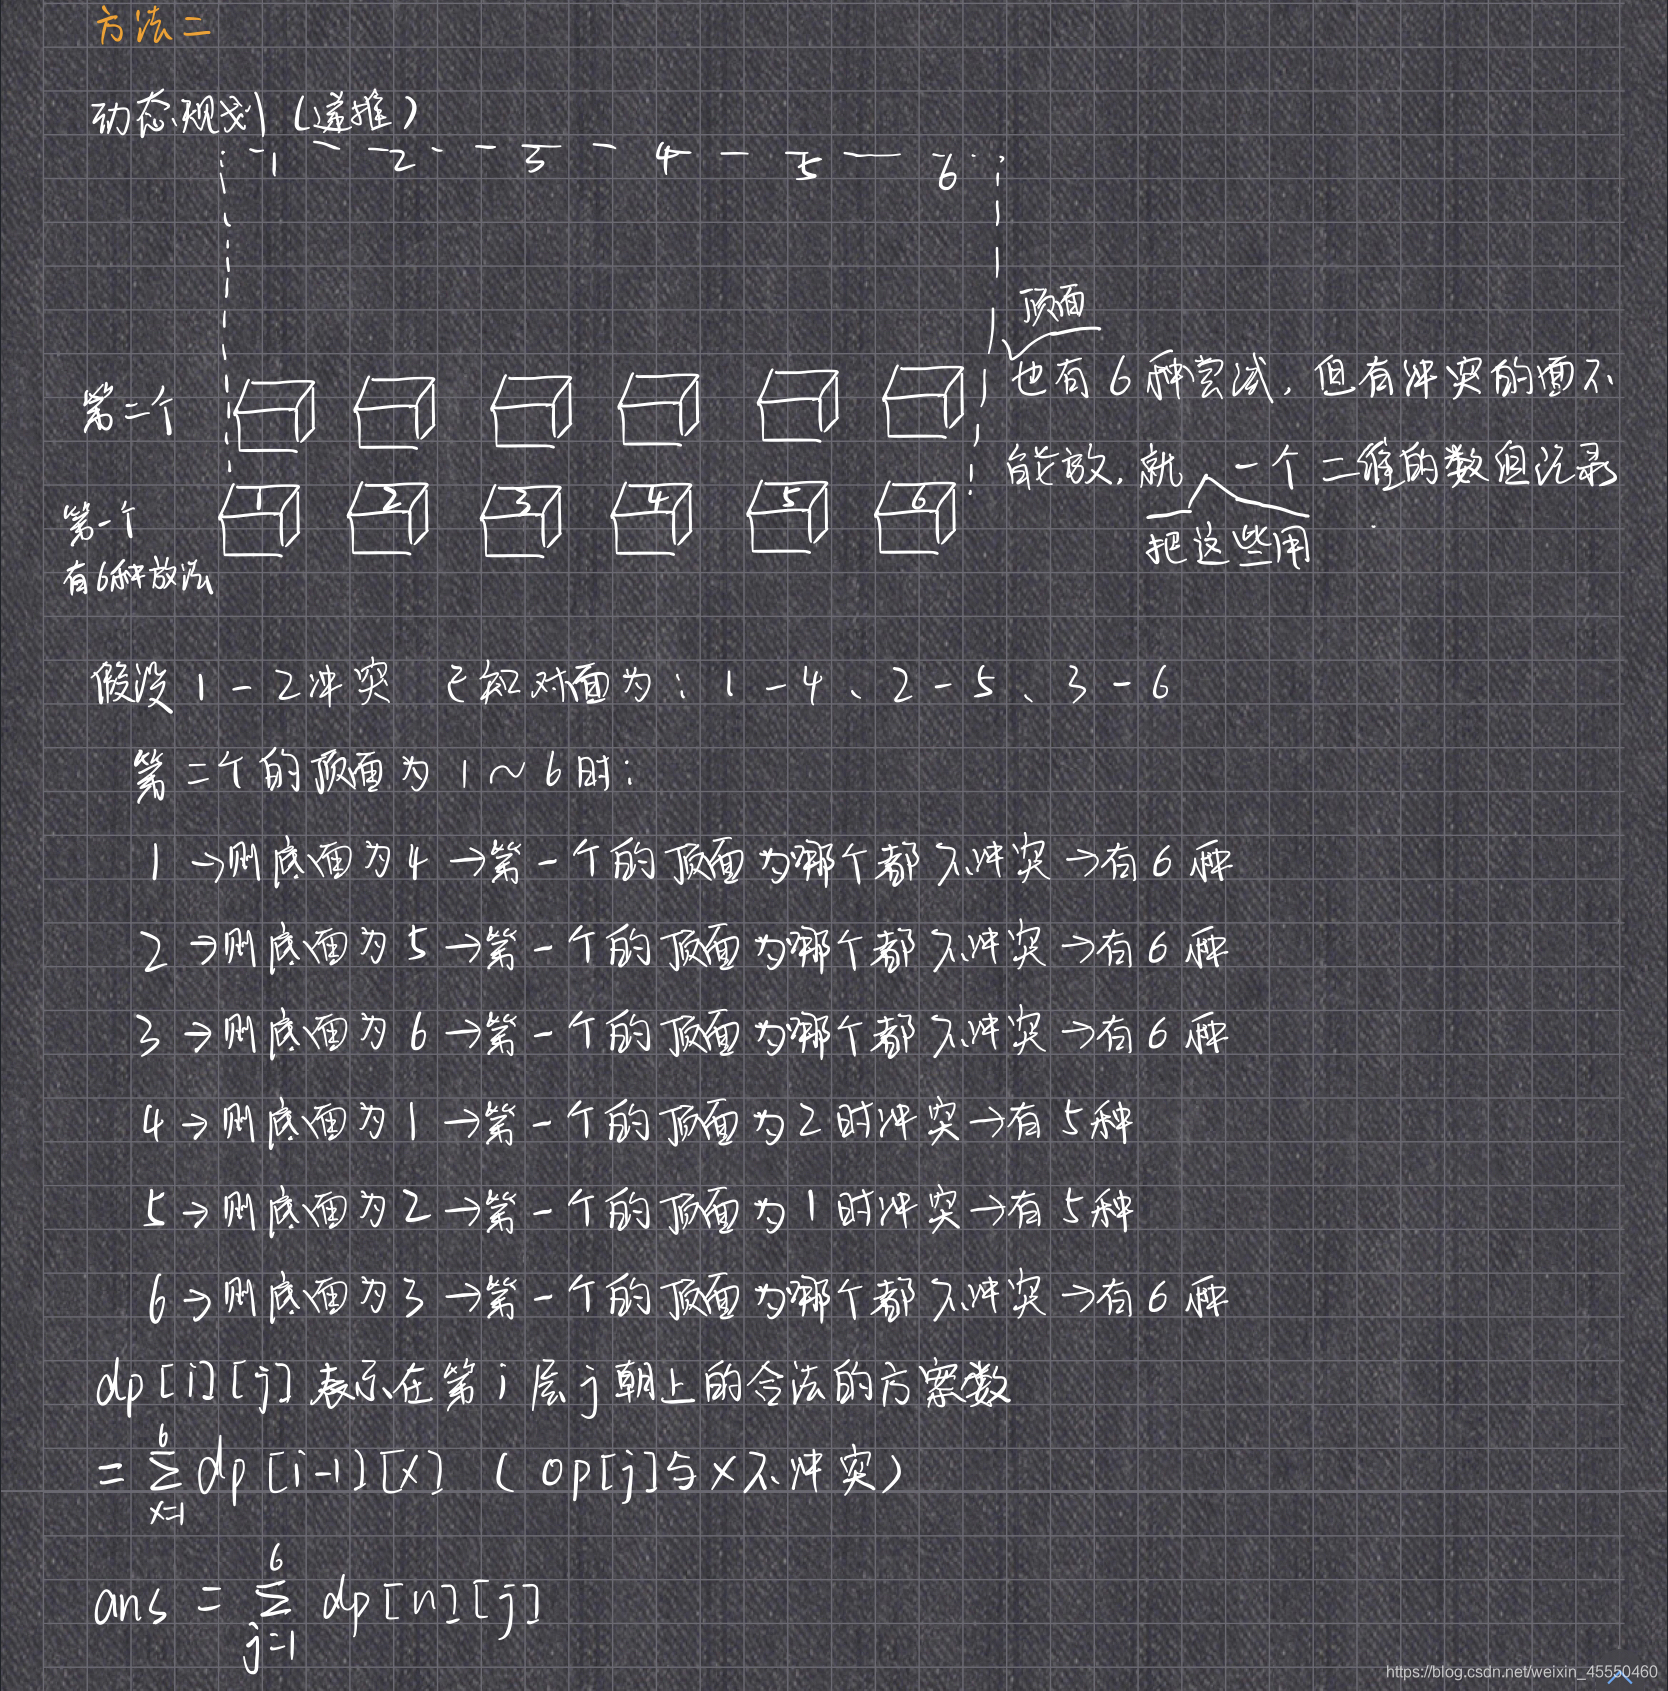 方法二
动态规划（递推）
1 2 3 4 5 6
顶面
第二个
也有6种尝试，但有冲突的面不
能放，就 一个二维的数组记录
把这些用
第一个 1 2 3 4 5 6
有6种放法
假设1-2冲突 已知对面为：1-4、2-5、3-6
第二个的顶面为1～6时：
1→则底面为4→第一个的顶面为哪个都不冲突→有6种
2→则底面为5→第一个的顶面为哪个都不冲突→有6种
3→则底面为6→第一个的顶面为哪个都不冲突→有6种
4→则底面为1→第一个的顶面为2时冲突→有5种
5→则底面为2→第一个的顶面为1时冲突→有5种
6→则底面为3→第一个的顶面为哪个都不冲突→有6种
dp[i][j]表示在第i层j朝上的合法的方案数
=∑_{x=1}^{6}dp[i-1][x]（op[j]与x不冲突）
ans=∑_{j=1}^{6}dp[n][j]
https://blog.csdn.net/weixin_45550460